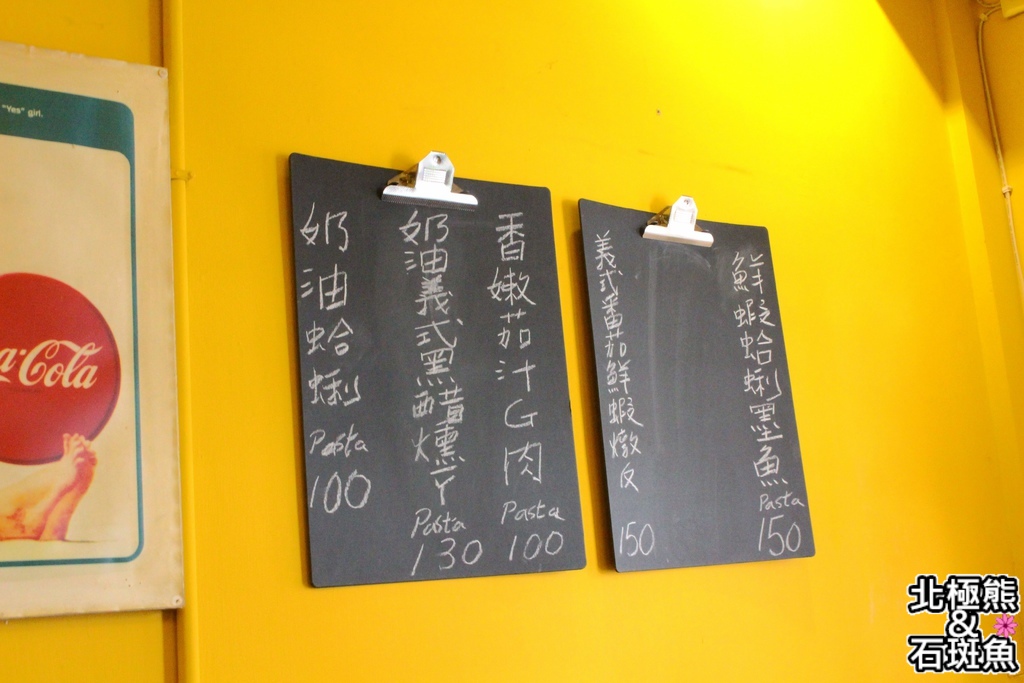 "Yes" girl.
a-Cola
香嫩茄汁G肉 Pasta 100
奶油義式黑醋燻丫 Pasta 130
奶油蛤蜊 Pasta 100
鮮蝦蛤蜊墨魚 Pasta 150
義式番茄鮮蝦燉反 150
北極熊
&
石斑魚